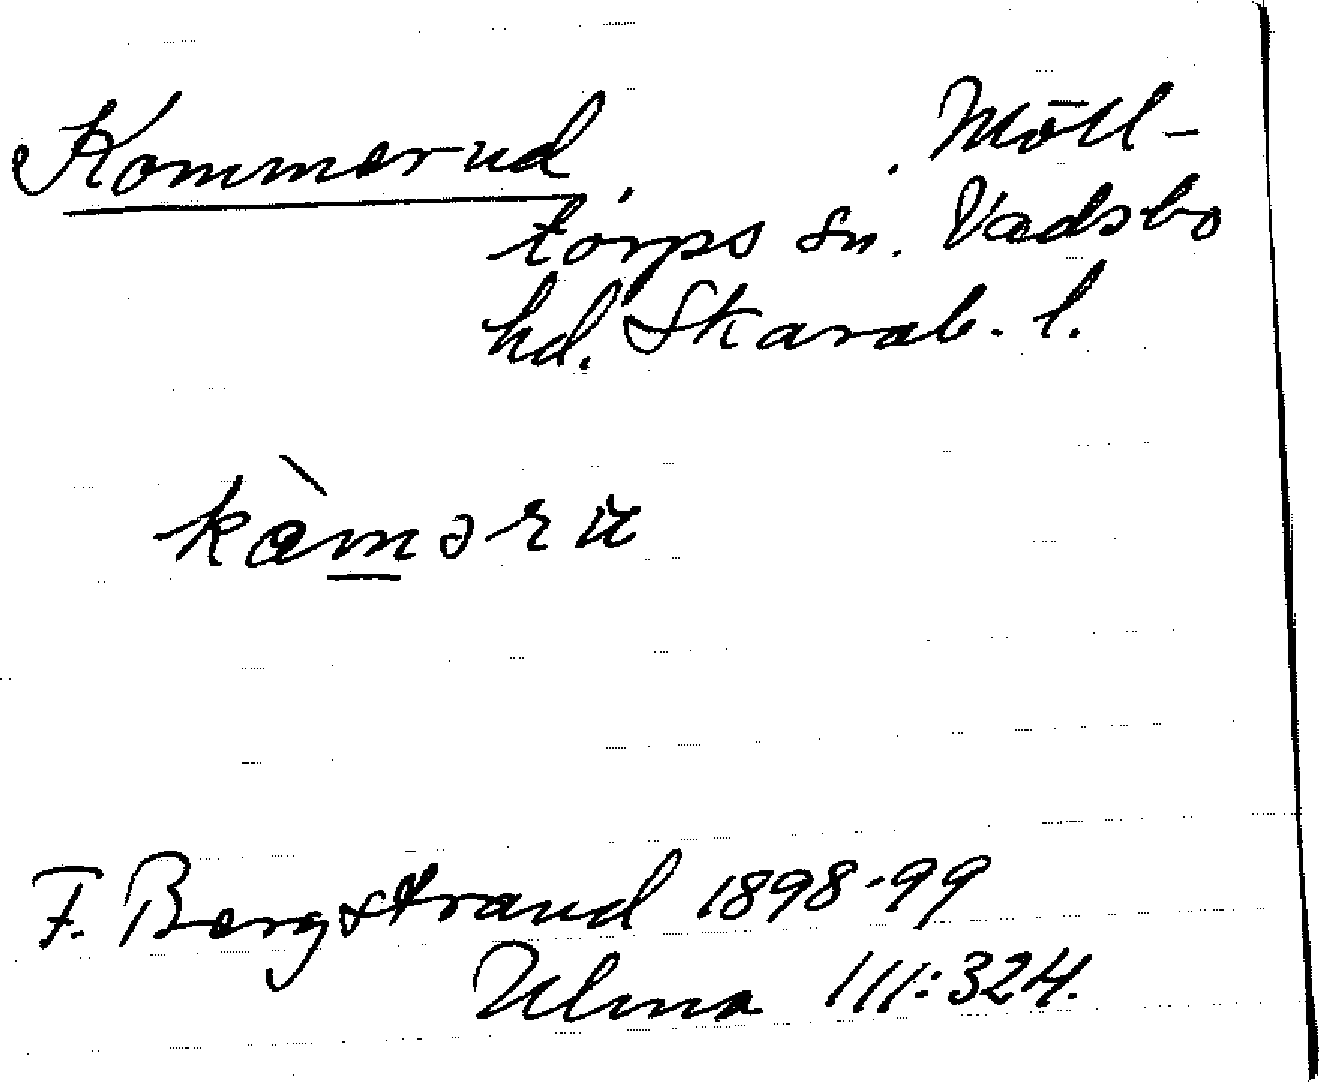 Kommerud, Möll-
torps sn. Vadsbo
hd. Skarab. l.
kàməru
F. Bergstrand 1898-99
Ulma 111:324.